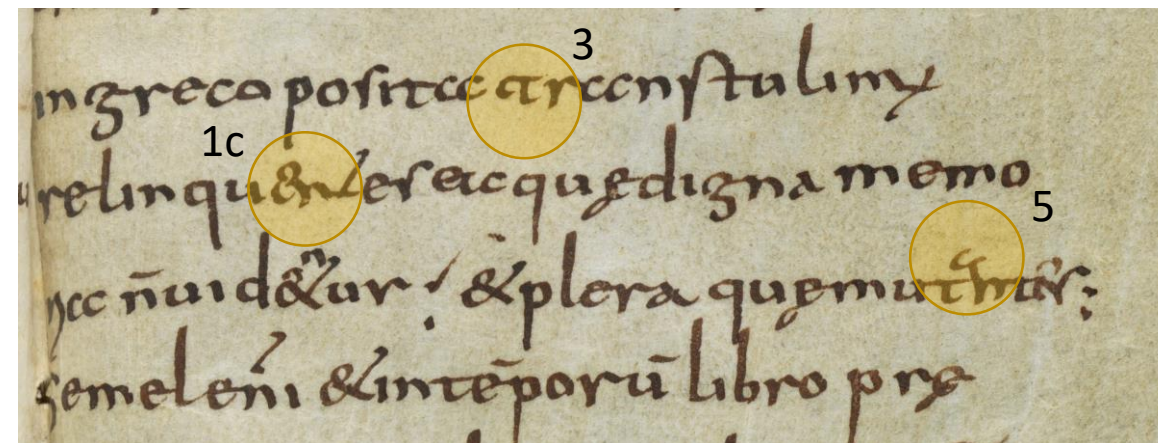 3
ingreco posita transtulimus
1c
relinquentes eacquędigna memo
5
n̄uid&ur ; &plera quęmutantes;
semelenī &intēporū libro prę